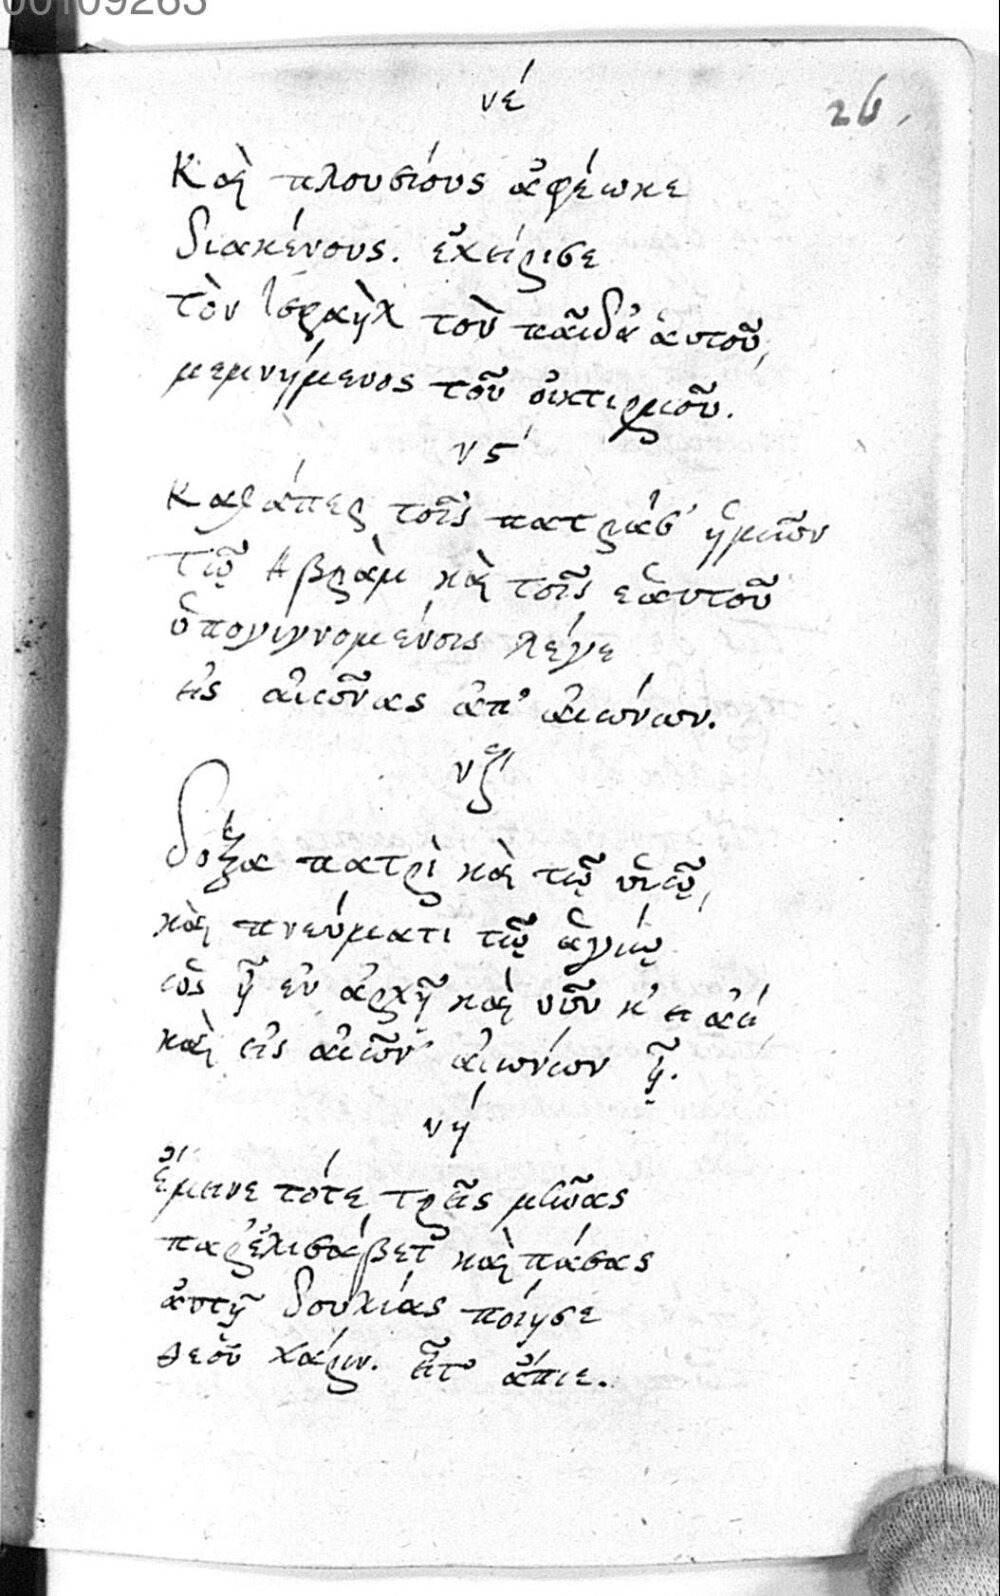 00109263
νέ
26.
Καὶ πλουσίους ἀφέωκε
διακένους. ἐχείρισε
τὸν Ἰσραὴλ τοῦ παῖδ' αὑτοῦ,
μεμνήμενος τοῦ οἰκτιρμοῦ.
νϛ'
Καθάπερ τοῖς πατράσ' ἡμῶν
τῷ Ἀβραὰμ καὶ τοῖς ἑαυτοῦ
ὑπογιγνομένοις λέγε
εἰς αἰῶνας ἀπ' αἰώνων.
νζ'
Δόξα πατρὶ καὶ τῷ υἱῷ,
καὶ πνεύματι τῷ ἁγίῳ
ὡς ἦ ἐν ἀρχῇ καὶ νῦν κ' εἰ ἀεί
καὶ εἰς αἰῶν' αἰώνων ᾖ.
νή
Ἔμεινε τότε τρεῖς μῶας
παρ' Ἐλισάβετ καὶ πάσας
αὐτῇ δουλίας ποίησε
θεοῦ χάριν. εἶτ' ἄπιε.